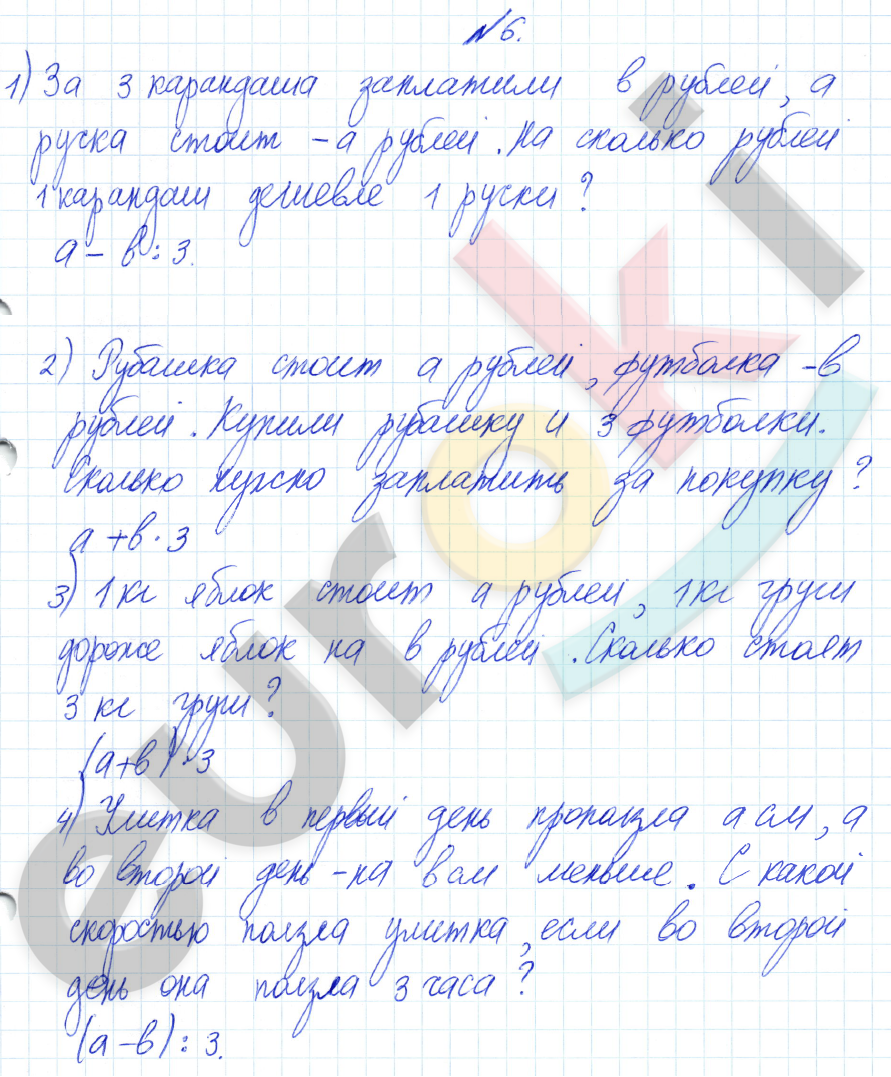 №6.
1) За 3 карандаша заплатили в рублей, а
ручка стоит - а рублей. На сколько рублей
1 карандаш дешевле 1 ручки?
а - в : 3.
2) Рубашка стоит а рублей, футболка - в
рублей. Купили рубашку и 3 футболки.
Сколько нужно заплатить за покупку?
а + в · 3
3) 1 кг яблок стоит а рублей, 1 кг груш
дороже яблок на в рублей. Сколько стоят
3 кг груш?
(а+в) · 3
4) Улитка в первый день проползла а см, а
во второй день - на в см меньше. С какой
скоростью ползла улитка, если во второй
день она ползла 3 часа?
(а - в) : 3.
euroki